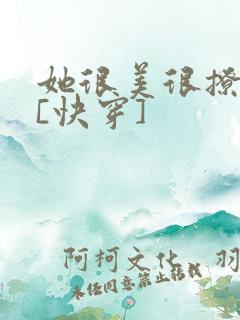 她很美很撩
[快穿]
阿柯文化 羽
未经同意禁止转载